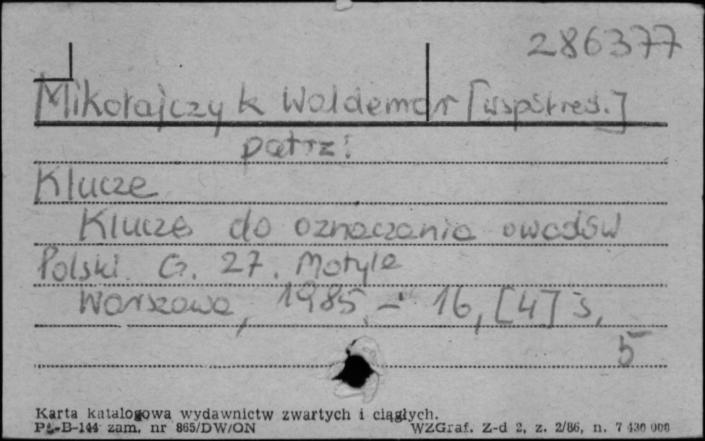 286377
Mikołajczyk Waldemar [współred.]
patrz:
Klucze
Klucze do oznaczania owadów
Polski. G. 27. Motyle
Warszawa, 1985. - 16, [4] s.
5
Karta katalogowa wydawnictw zwartych i ciągłych.
Pu-B-144 zam. nr 865/DW/ON WZGraf. Z-d 2, z. 2/86, n. 7 430 000